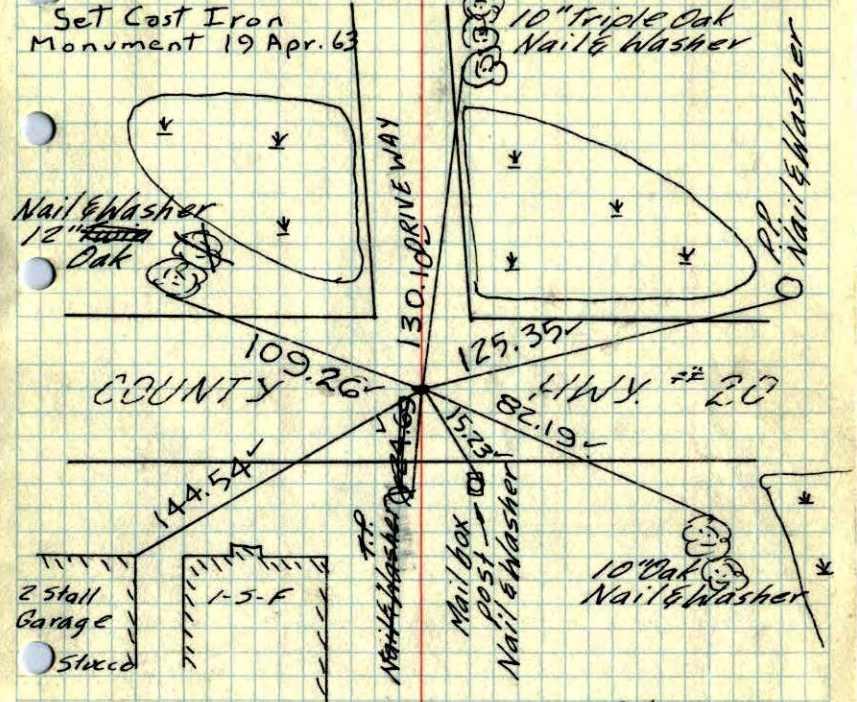 Set Cast Iron
Monument 19 Apr. 63
10" Triple Oak
Nail & Washer
DRIVE WAY
130.10
P.P.
Nail & Washer
Nail & Washer
12"
Oak
109.26
125.35
COUNTY HWY. # 20
82.19
15.23
24.69
144.54
T.P.
Nail & Washer
Mail box
post
Nail & Washer
10" Oak
Nail & Washer
2 Stall
Garage
Stucco
1-S-F